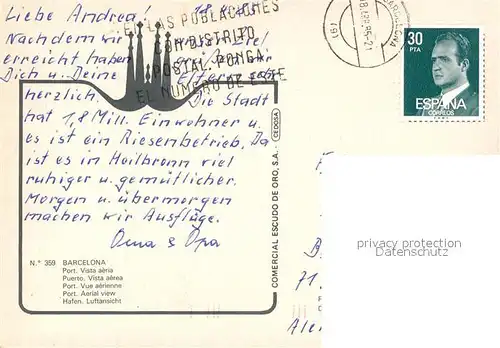 Liebe Andrea! 18.4.85
Nachdem wir Ziel
erreicht haben
Dich u. Deine Eltern sehr
herzlich. Die Stadt
hat 1,8 Mill. Einwohner u.
es ist ein Riesenbetrieb. Da
ist es in Heilbronn viel
ruhiger u. gemütlicher.
Morgen u. übermorgen
machen wir Ausflüge.
Oma & Opa
EN LAS POBLACIONES
CON DISTRITO
POSTAL, PONGA
EL NUMERO DE ESTE
BARCELONA
(19)
30
PTA
ESPAÑA
CORREOS
CEDOSA
COMERCIAL ESCUDO DE ORO, S.A.
N.° 359 BARCELONA
Port. Vista aèria
Puerto. Vista aérea
Port. Vue aérienne
Port. Aerial view
Hafen. Luftansicht
privacy protection
Datenschutz
71.